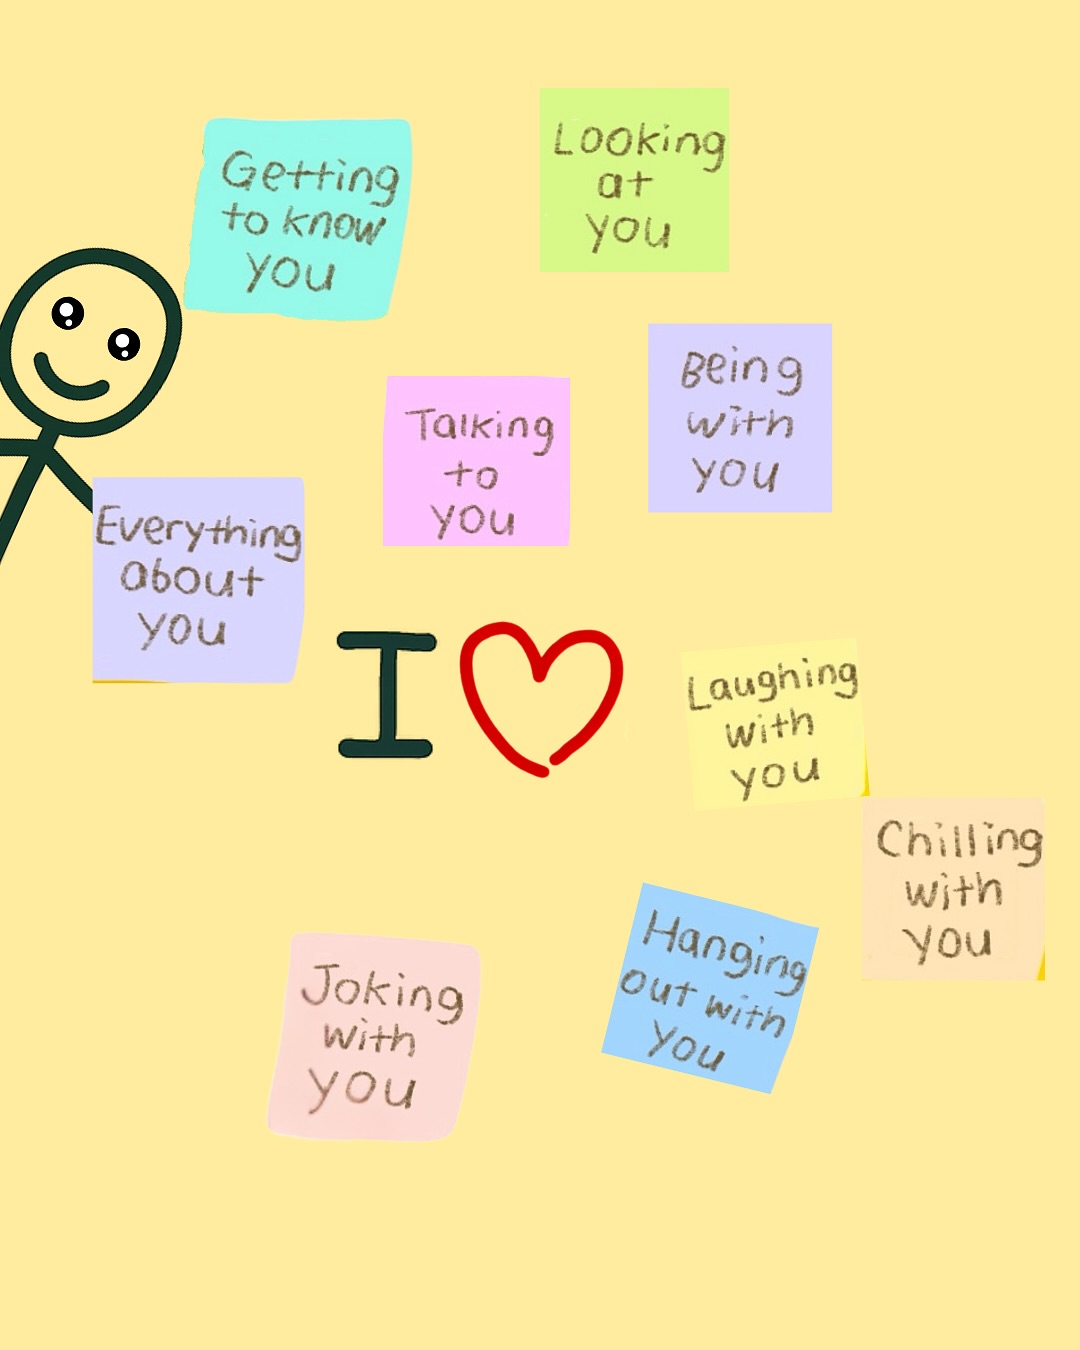 Getting
to know
you
Looking
at
you
Being
with
you
Talking
to
you
Everything
about
you
I
Laughing
with
you
Chilling
with
you
Hanging
out with
you
Joking
with
you